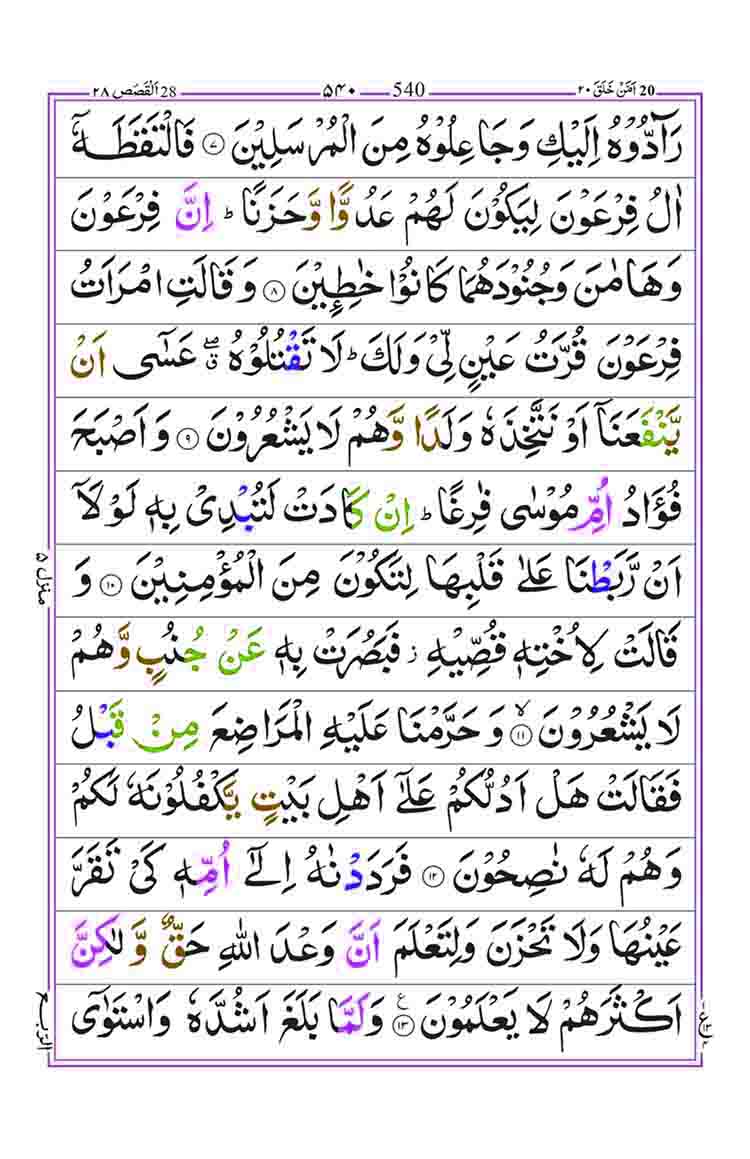 20 اَمَّنْ خَلَقَ ٢٠
540 ۵۴۰
28 اَلْقَصَص ٢٨
رَآدُّوْهُ اِلَيْكِ وَجَاعِلُوْهُ مِنَ الْمُرْسَلِيْنَ ۷ فَالْتَقَطَهٗۤ
اٰلُ فِرْعَوْنَ لِيَكُوْنَ لَهُمْ عَدُوًّا وَّحَزَنًا ؕ اِنَّ فِرْعَوْنَ
وَهَامٰنَ وَجُنُوْدَهُمَا كَانُوْا خٰطِـِٕيْنَ ۸ وَقَالَتِ امْرَاَتُ
فِرْعَوْنَ قُرَّتُ عَيْنٍ لِّىْ وَلَكَ ؕ لَا تَقْتُلُوْهُ ۖۗ عَسٰٓى اَنْ
يَّنْفَعَنَاۤ اَوْ نَتَّخِذَهٗ وَلَدًا وَّهُمْ لَا يَشْعُرُوْنَ ۹ وَاَصْبَحَ
فُؤَادُ اُمِّ مُوْسٰى فٰرِغًا ؕ اِنْ كَادَتْ لَتُبْدِىْ بِهٖ لَوْلَاۤ
اَنْ رَّبَطْنَا عَلٰى قَلْبِهَا لِتَكُوْنَ مِنَ الْمُؤْمِنِيْنَ ۱۰ وَ
قَالَتْ لِاُخْتِهٖ قُصِّيْهِ ز فَبَصُرَتْ بِهٖ عَنْ جُنُبٍ وَّهُمْ
لَا يَشْعُرُوْنَ ۙ ۱۱ وَحَرَّمْنَا عَلَيْهِ الْمَرَاضِعَ مِنْ قَبْلُ
فَقَالَتْ هَلْ اَدُلُّكُمْ عَلٰٓى اَهْلِ بَيْتٍ يَّكْفُلُوْنَهٗ لَكُمْ
وَهُمْ لَهٗ نٰصِحُوْنَ ۱۲ فَرَدَدْنٰهُ اِلٰٓى اُمِّهٖ كَىْ تَقَرَّ
عَيْنُهَا وَلَا تَحْزَنَ وَلِتَعْلَمَ اَنَّ وَعْدَ اللّٰهِ حَقٌّ وَّلٰكِنَّ
اَكْثَرَهُمْ لَا يَعْلَمُوْنَ ۱۳ ع وَلَمَّا بَلَغَ اَشُدَّهٗ وَاسْتَوٰٓى
منزل ۵
الربع